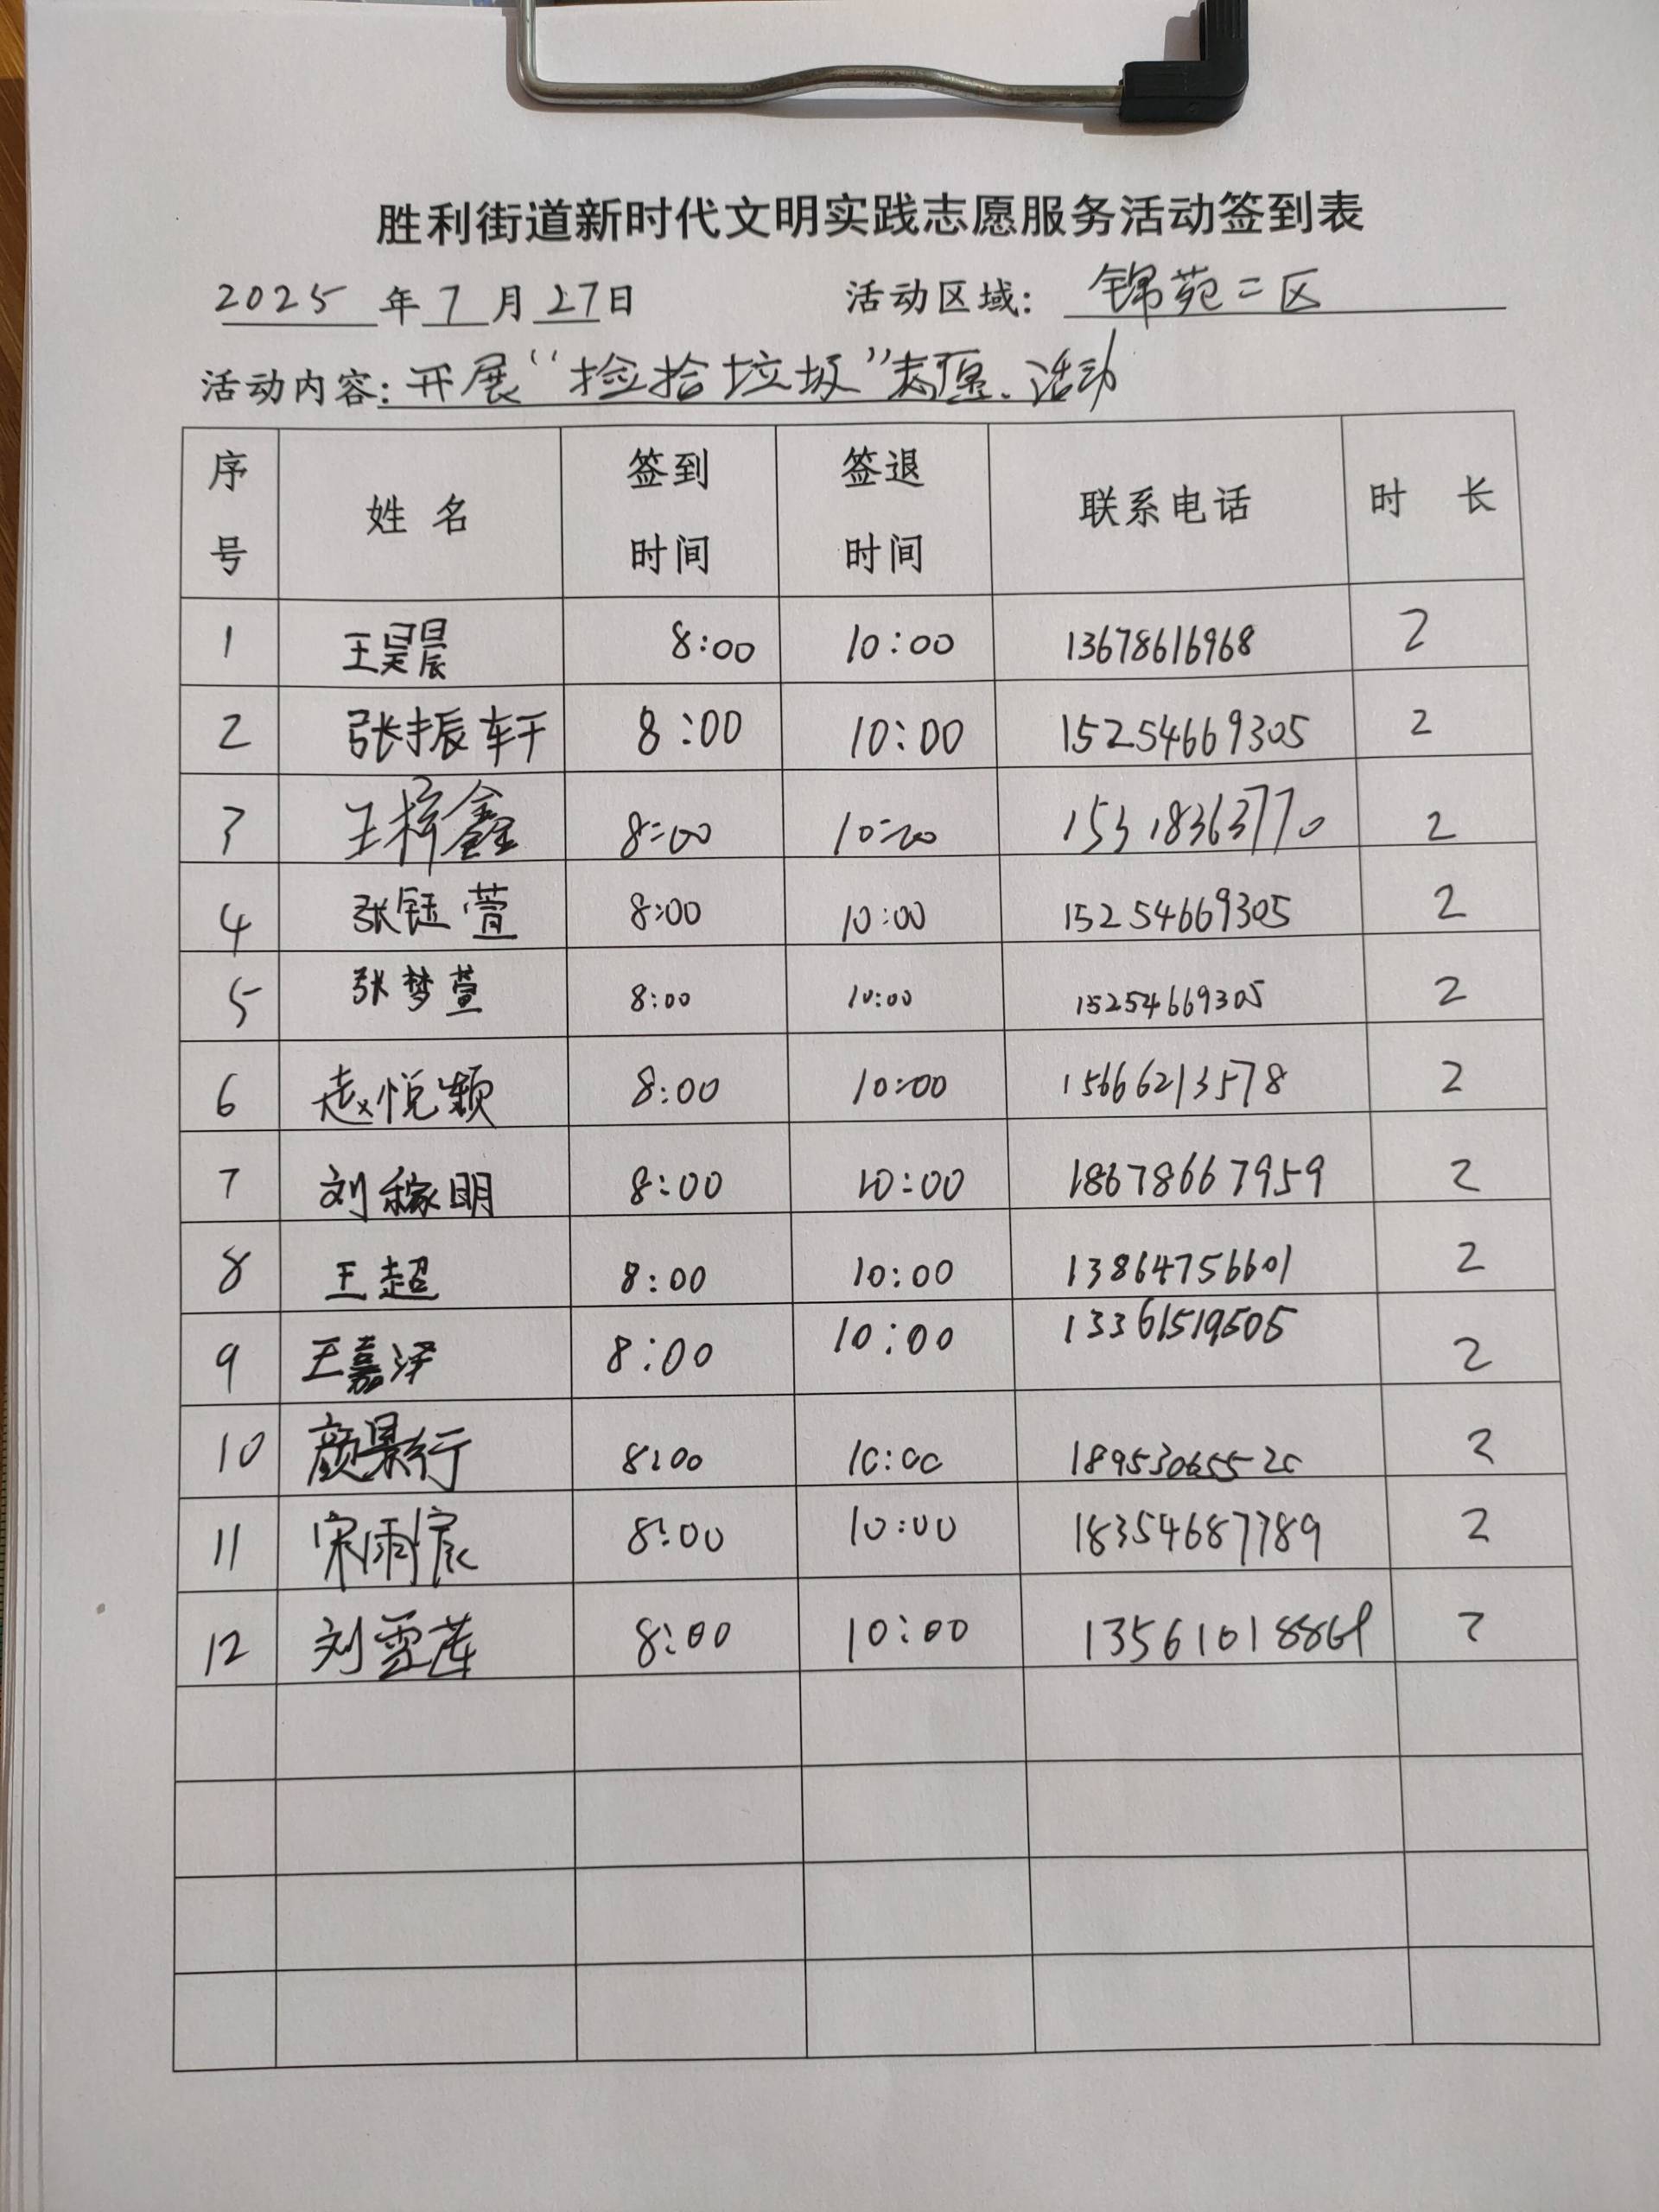 胜利街道新时代文明实践志愿服务活动签到表
2025年7月27日 活动区域: 锦苑二区
活动内容: 开展“捡拾垃圾”志愿活动
序号 姓名 签到时间 签退时间 联系电话 时长
1 王昊晨 8:00 10:00 13678616968 2
2 张振轩 8:00 10:00 15254669305 2
3 王梓鑫 8:00 10:00 15318363770 2
4 张钰萱 8:00 10:00 15254669305 2
5 张梦萱 8:00 10:00 15254669305 2
6 赵悦颖 8:00 10:00 15666213578 2
7 刘稼明 8:00 10:00 18678667959 2
8 王超 8:00 10:00 13864756601 2
9 王嘉泽 8:00 10:00 13361519505 2
10 颜景行 8:00 10:00 18953065520 2
11 宋雨宸 8:00 10:00 18354687789 2
12 刘雪莲 8:00 10:00 2